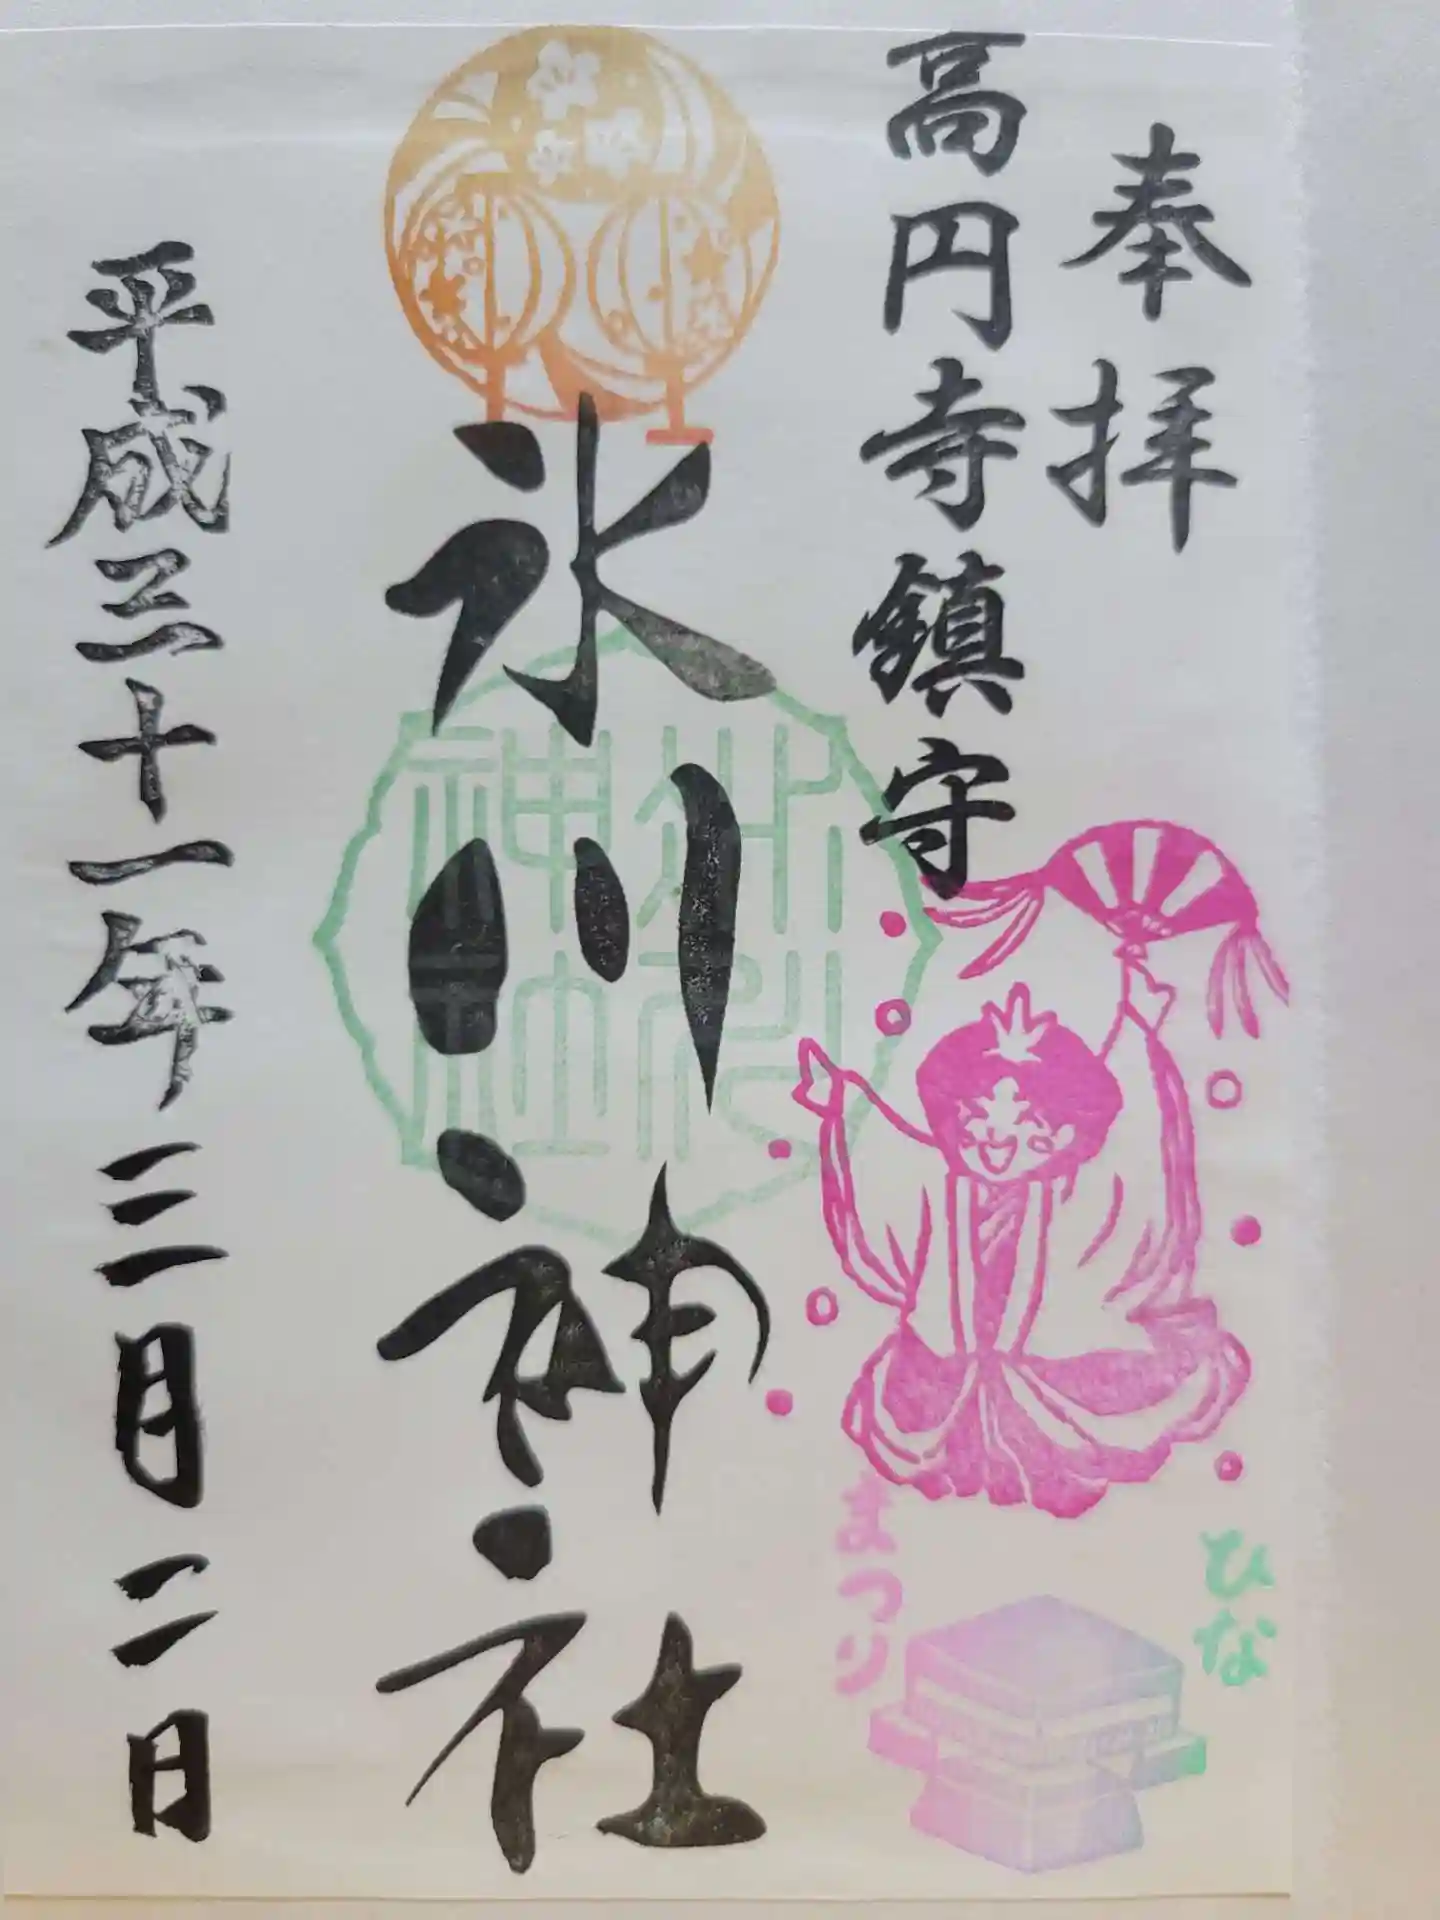 奉拝
高円寺鎮守
氷川神社
平成三十一年三月二日
ひな
まつり